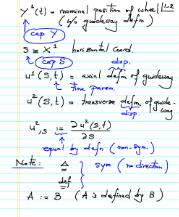 Y²(t) = nominal position of wheel 1-2
(w/o guideway defm)
cap Y
S ≡ X¹ horizontal coord.
cap S disp.
u¹(S,t) = axial defm of guideway
time param.
u²(S,t) = transverse defm of guide-
way
disp.
u²,s := ∂u²(S,t) / ∂S
equal by defn (non-sym.)
Note: ≜
≝ } sym (no direction)
A := B (A is defined by B)